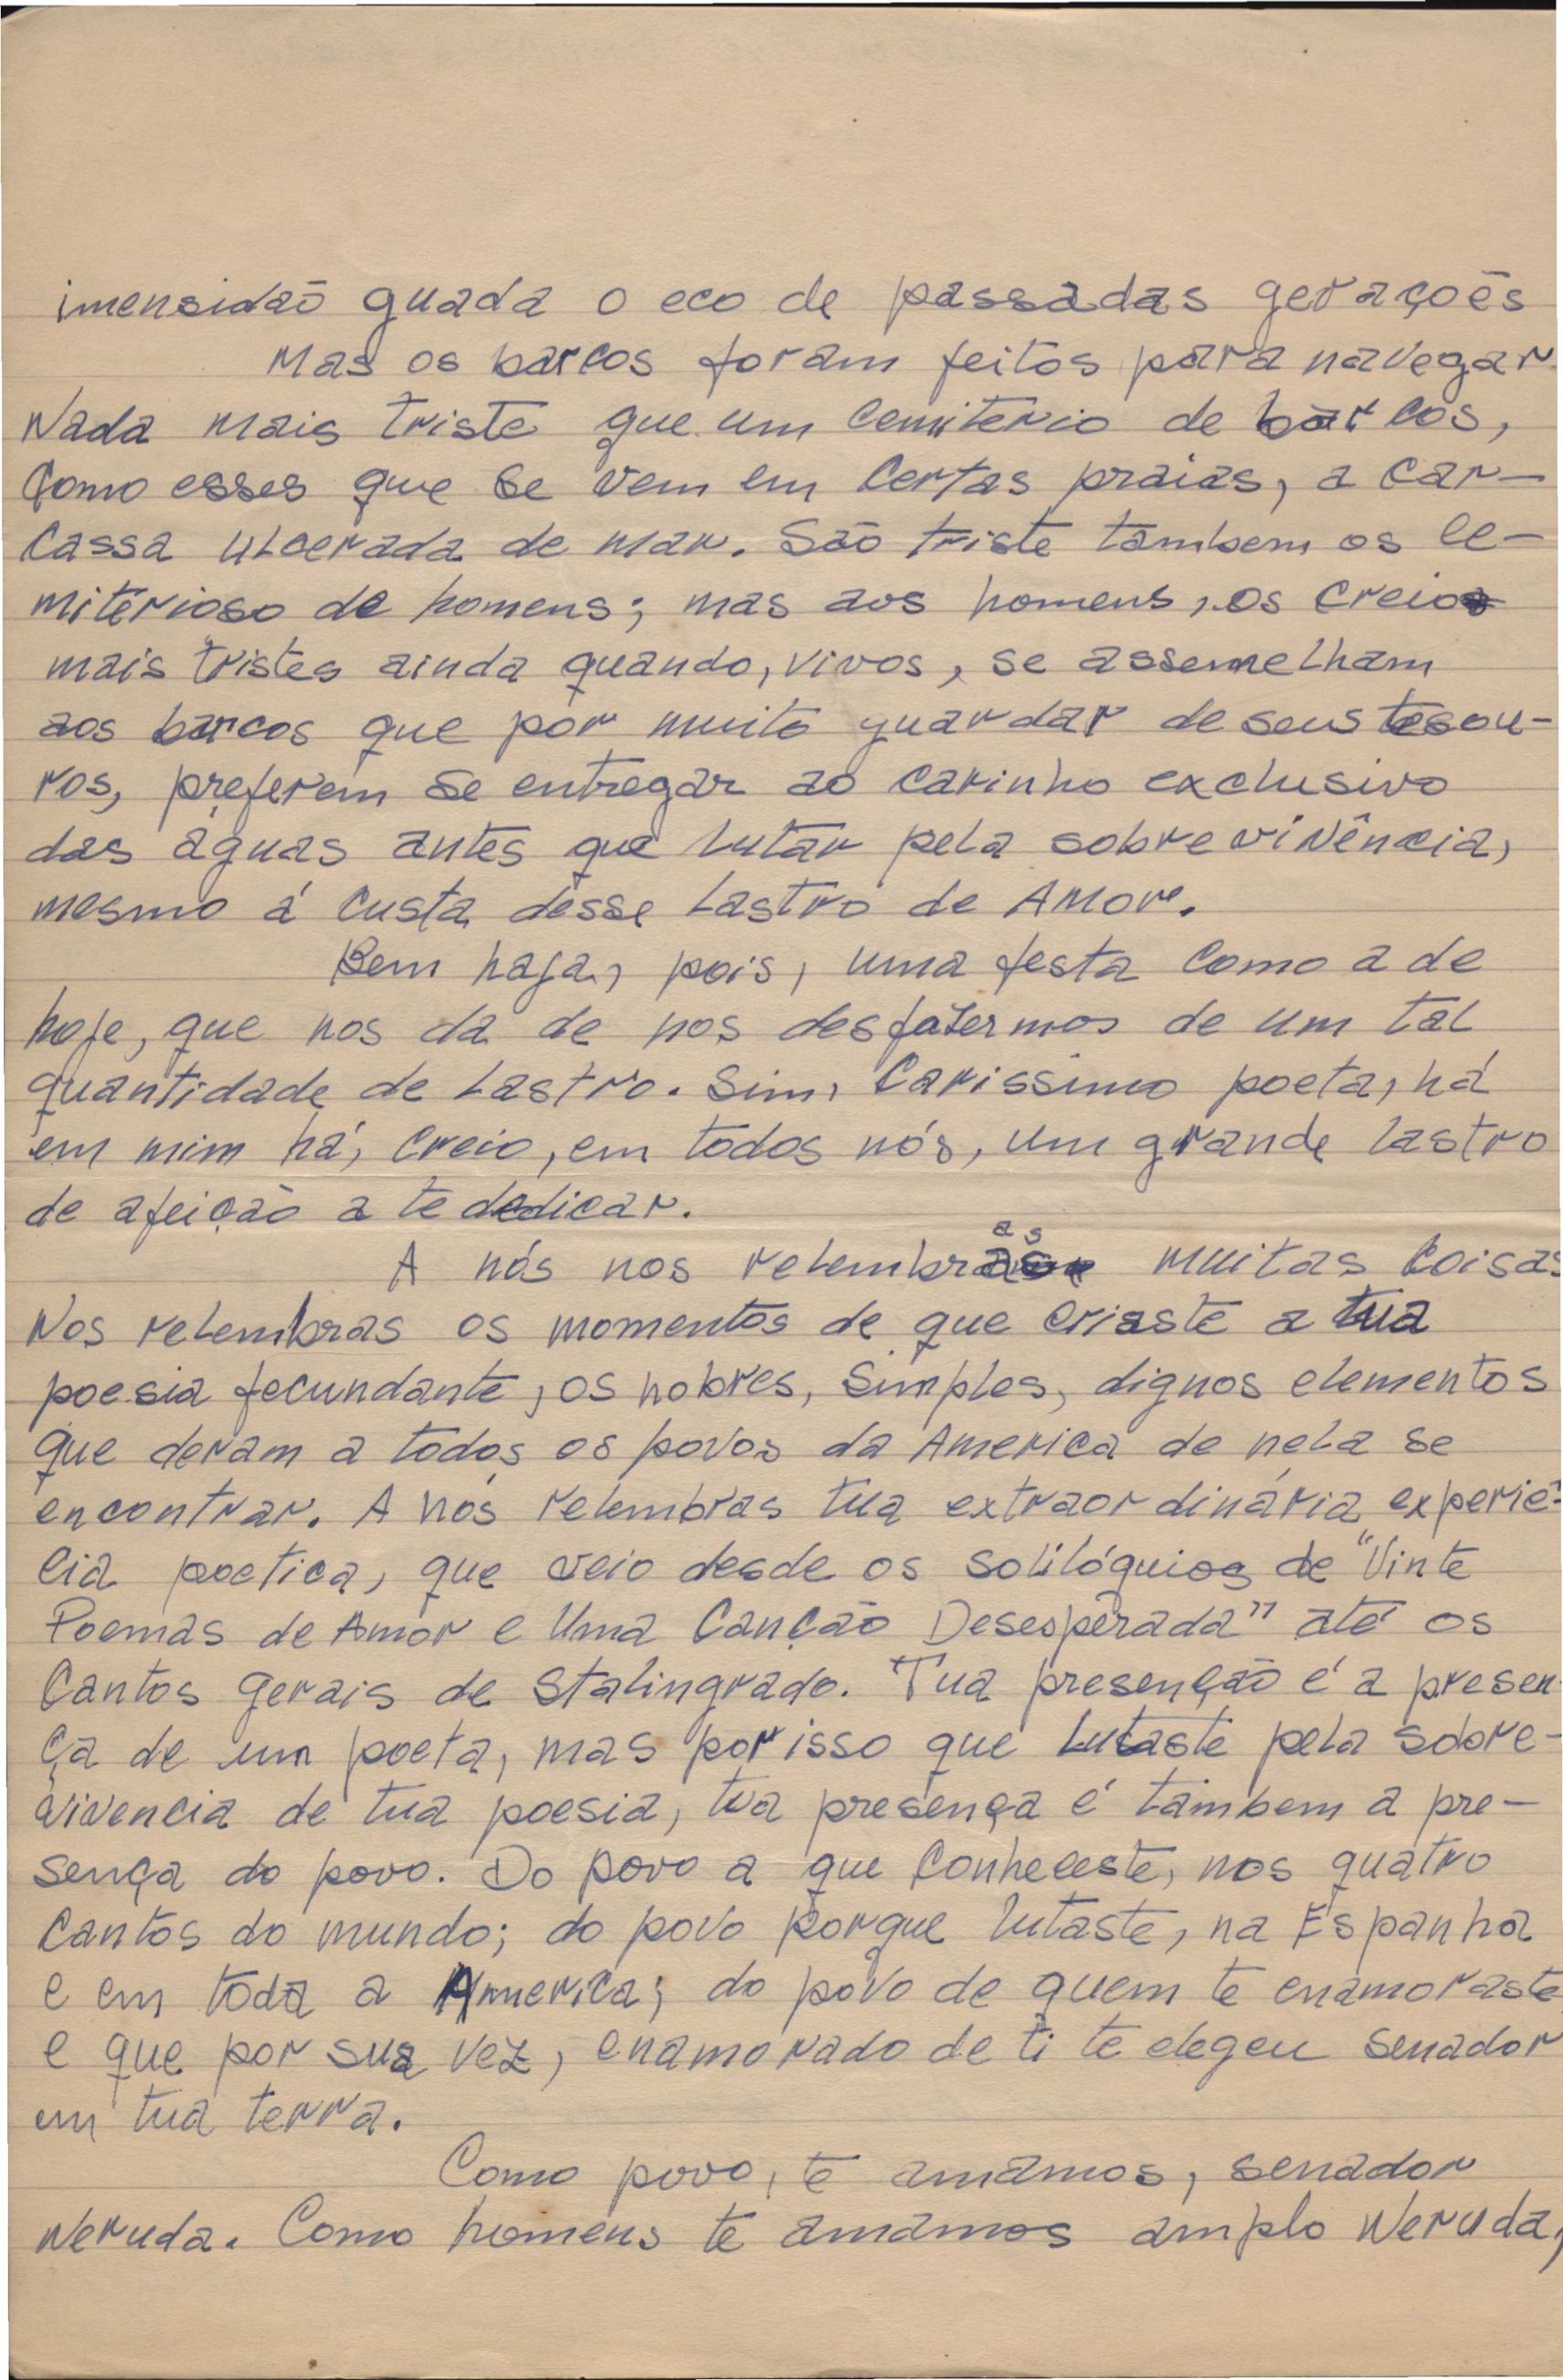 imensidaõ guada o eco de passadas geraçoẽs
Mas os barcos foram feitos para navegar.
Nada mais triste que um cemiterio de barcos,
Como esses que se vem em certas praias, a car-
cassa ulcerada de mar. São triste tambem os ce-
miterioso de homens; mas aos homens, os creio
mais tristes ainda quando, vivos, se assemelham
aos barcos que por muito guardar de seus tesou-
ros, preferem se entregar ao carinho exclusivo
das aguas antes que lutar pela sobrevivência,
mesmo á custa desse lastro de Amor.
Bem haja, pois, uma festa como a de
hoje, que nos da de nos desfazermos de um tal
quantidade de lastro. Sim, Carissimo poeta, há
em mim há, creio, em todos nós, um grande lastro
de afeição a te dedicar.
A nós nos relembras muitas coisas
Nos relembras os momentos de que criaste a tua
poesia fecundante, os nobres, simples, dignos elementos
que deram a todos os povos da America de nela se
encontrar. A nós relembras tua extraordinária experiê-
cia poetica, que veio desde os solilóquios de "Vinte
Poemas de Amor e Uma Canção Desesperada" até os
Cantos gerais de Stalingrado. Tua presenção é a presen
ça de um poeta, mas por isso que lutaste pela sobre-
vivencia de tua poesia, tua presença é tambem a pre-
sença do povo. Do povo a que conheceste, nos quatro
cantos do mundo; do povo porque lutaste, na Espanha
e em toda a America; do povo de quem te enamoraste
e que por sua vez, enamorado de ti te elegeu senador
em tua terra.
Como povo, te amamos, senador
Neruda. Como homens te amamos amplo Neruda,